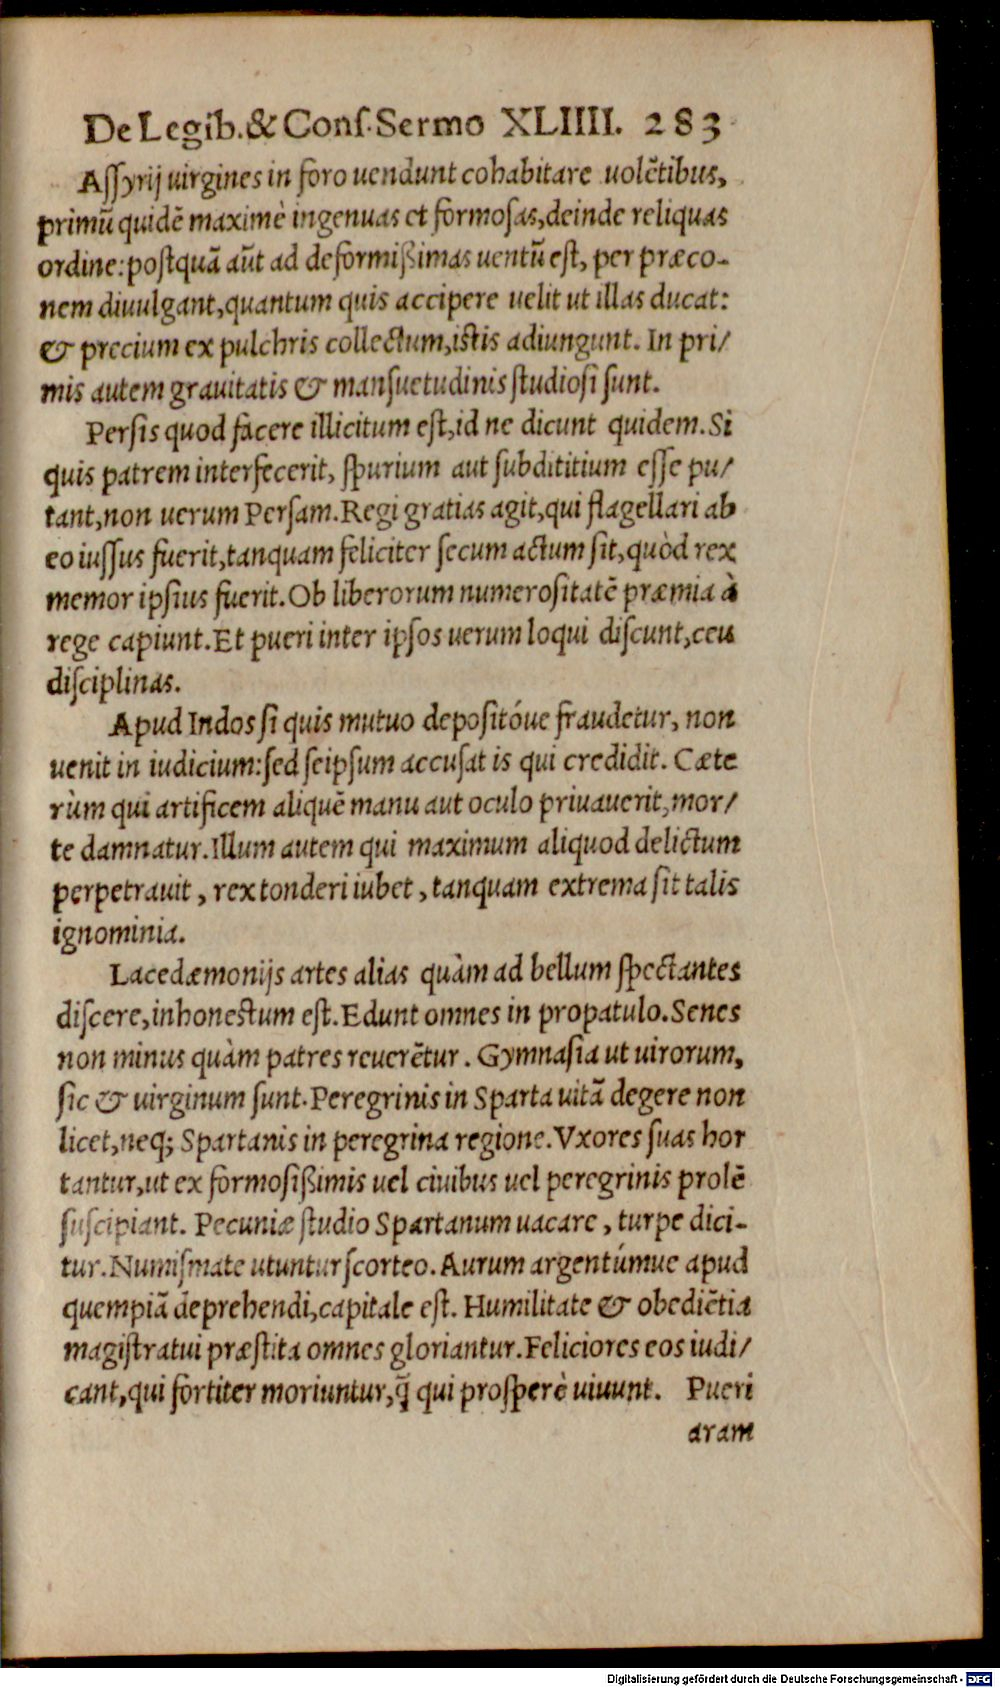 De Legib. & Conſ. Sermo XLIIII. 283
Aſſyrij uirgines in foro uendunt cohabitare uolẽtibus,
primũ quidẽ maximè ingenuas et formoſas, deinde reliquas
ordine: poſtquã aũt ad deformißimas uentũ eſt, per præco-
nem diuulgant, quantum quis accipere uelit ut illas ducat:
& precium ex pulchris collectum, iſtis adiungunt. In pri/
mis autem grauitatis & manſuetudinis ſtudioſi ſunt.
Perſis quod facere illicitum eſt, id ne dicunt quidem. Si
quis patrem interfecerit, ſpurium aut ſubdititium eſſe pu/
tant, non uerum Perſam. Regi gratias agit, qui flagellari ab
eo iuſſus fuerit, tanquam feliciter ſecum actum ſit, quòd rex
memor ipſius fuerit. Ob liberorum numeroſitatẽ præmia à
rege capiunt. Et pueri inter ipſos uerum loqui diſcunt, ceu
diſciplinas.
Apud Indos ſi quis mutuo depoſitóue fraudetur, non
uenit in iudicium: ſed ſeipſum accuſat is qui credidit. Cæte
rùm qui artificem aliquẽ manu aut oculo priuauerit, mor/
te damnatur. Illum autem qui maximum aliquod delictum
perpetrauit, rex tonderi iubet, tanquam extrema ſit talis
ignominia.
Lacedæmonijs artes alias quàm ad bellum ſpectantes
diſcere, inhoneſtum eſt. Edunt omnes in propatulo. Senes
non minus quàm patres reuerẽtur. Gymnaſia ut uirorum,
ſic & uirginum ſunt. Peregrinis in Sparta uitã degere non
licet, neq; Spartanis in peregrina regione. Vxores ſuas hor
tantur, ut ex formoſißimis uel ciuibus uel peregrinis prolẽ
ſuſcipiant. Pecuniæ ſtudio Spartanum uacare, turpe dici-
tur. Numiſmate utuntur ſcorteo. Aurum argentúmue apud
quempiã deprehendi, capitale eſt. Humilitate & obediẽtia
magiſtratui præſtita omnes gloriantur. Feliciores eos iudi/
cant, qui fortiter moriuntur, q̃ qui proſperè uiuunt. Pueri
aram
Digitalisierung gefördert durch die Deutsche Forschungsgemeinschaft - DFG